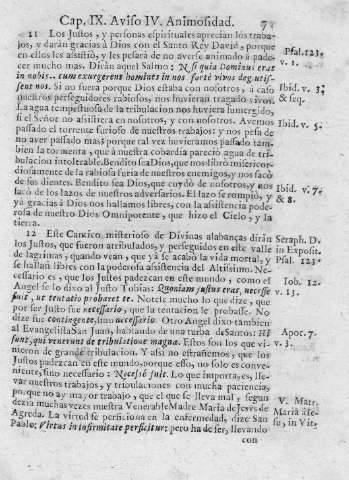 Cap. IX. Aviso IV. Animosidad. 7
11 Los Justos, y personas espirituales aprecian los traba-
jos, y darán gracias à Dios con el Santo Rey David, porque
en ellos les assistiò, y les pesarà de no averse animado à pade-
cer mucho mas. Diràn aquel Salmo: Nisi quia Dominus erat
in nobis.. cum exurgerent homines in nos forte vivos deglutis-
sent nos. Si no fuera porque Dios estaba con nosotros, à caso
nuestros perseguidores rabiosos, nos huvieran tragado vivos.
La agua tempestuosa de la tribulacion nos huviera sumergido,
si el Señor no assistiera en nosotros, y con nosotros. Avemos
passado el torrente furioso de nuestros trabajos: y nos pesa de
no aver passado mas: porque tal vez huvieramos passado tam-
bien la tormenta, que à nuestra cobardia pareciò agua de tri-
bulacion intolerable. Bendito sea Dios, que nos librò misericor-
diosamente de la rabiosa furia de nuestros enemigos, y nos sacò
de sus dientes. Bendito sea Dios, que cuydò de nosotros, y nos
sacò de los lazos de nuestros adversarios. El lazo se rompiò, y
gracias à Dios nos hallamos libres, con la assistencia pode-
rosa de nuestro Dios Omnipotente, que hizo el Cielo, y la
tierra.
12 Este Cantico misterioso de Divinas alabanças diràn
los Justos, que fueron atribulados, y perseguidos en este valle
de lagrimas, quando vean, que yà se acabò la vida mortal, y
se hallan libres con la poderosa assistencia del Altissimo. Ne-
cessario es, que los Justos padezcan en este mundo, como el
Angel se lo dixo al Justo Tobias: Quoniam justus eras, necesse
fuit, ut tentatio probaret te. Notese mucho lo que dize, que
por ser Justo fue necessario, que la tentacion le probasse. No
dize fue contingente, sino necessario. Otro Angel dixo tambien
al Evangelista San Juan, hablando de una turba de Santos: Hi
sunt, qui venerunt de tribulatione magna. Estos son los que vi-
nieron de grande tribulacion. Y assi no estrañemos, que los
Justos padezcan en este mundo, porque esso, no solo es conve-
niente, sino necessario: Necesse fuit. Lo que importa, es, lle-
var nuestros trabajos, y tribulaciones con mucha paciencia,
porque no ay mayor trabajo, que el que se lleva mal, y segun
dezia muchas vezes nuestra Venerable Madre Maria de Jesus de
Agreda. La virtud se perficiona en la enfermedad, dize San
Pablo; Virtus in infirmitate perficitur; pero ha de ser, llevando
con
Psal. 123.
v. 1.
Ibid. v. 3.
& seq.
Ibid. v. 5.
Ibid. v. 7.
& 8.
Seraph. D.
in Exposit.
Psal. 123.
Tob. 12.
v. 13.
Apoc. 7.
v. 3.
V. Matr.
Maria à Je-
su, in Vit.